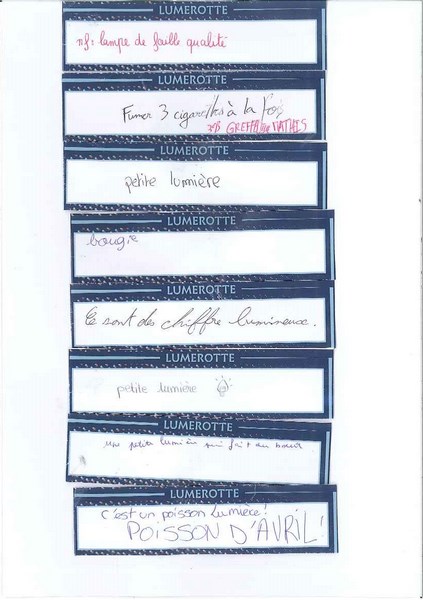 LUMEROTTE
nf: lampe de faible qualité
LUMEROTTE
Fumer 3 cigarettes à la fois
MATHIS
LUMEROTTE
petite lumière
LUMEROTTE
bougie
LUMEROTTE
Ce sont des chiffre lumineux.
LUMEROTTE
petite lumière
LUMEROTTE
une petite lumière qui fait du bruit
LUMEROTTE
c'est un poisson lumière!
POISSON D'AVRIL!